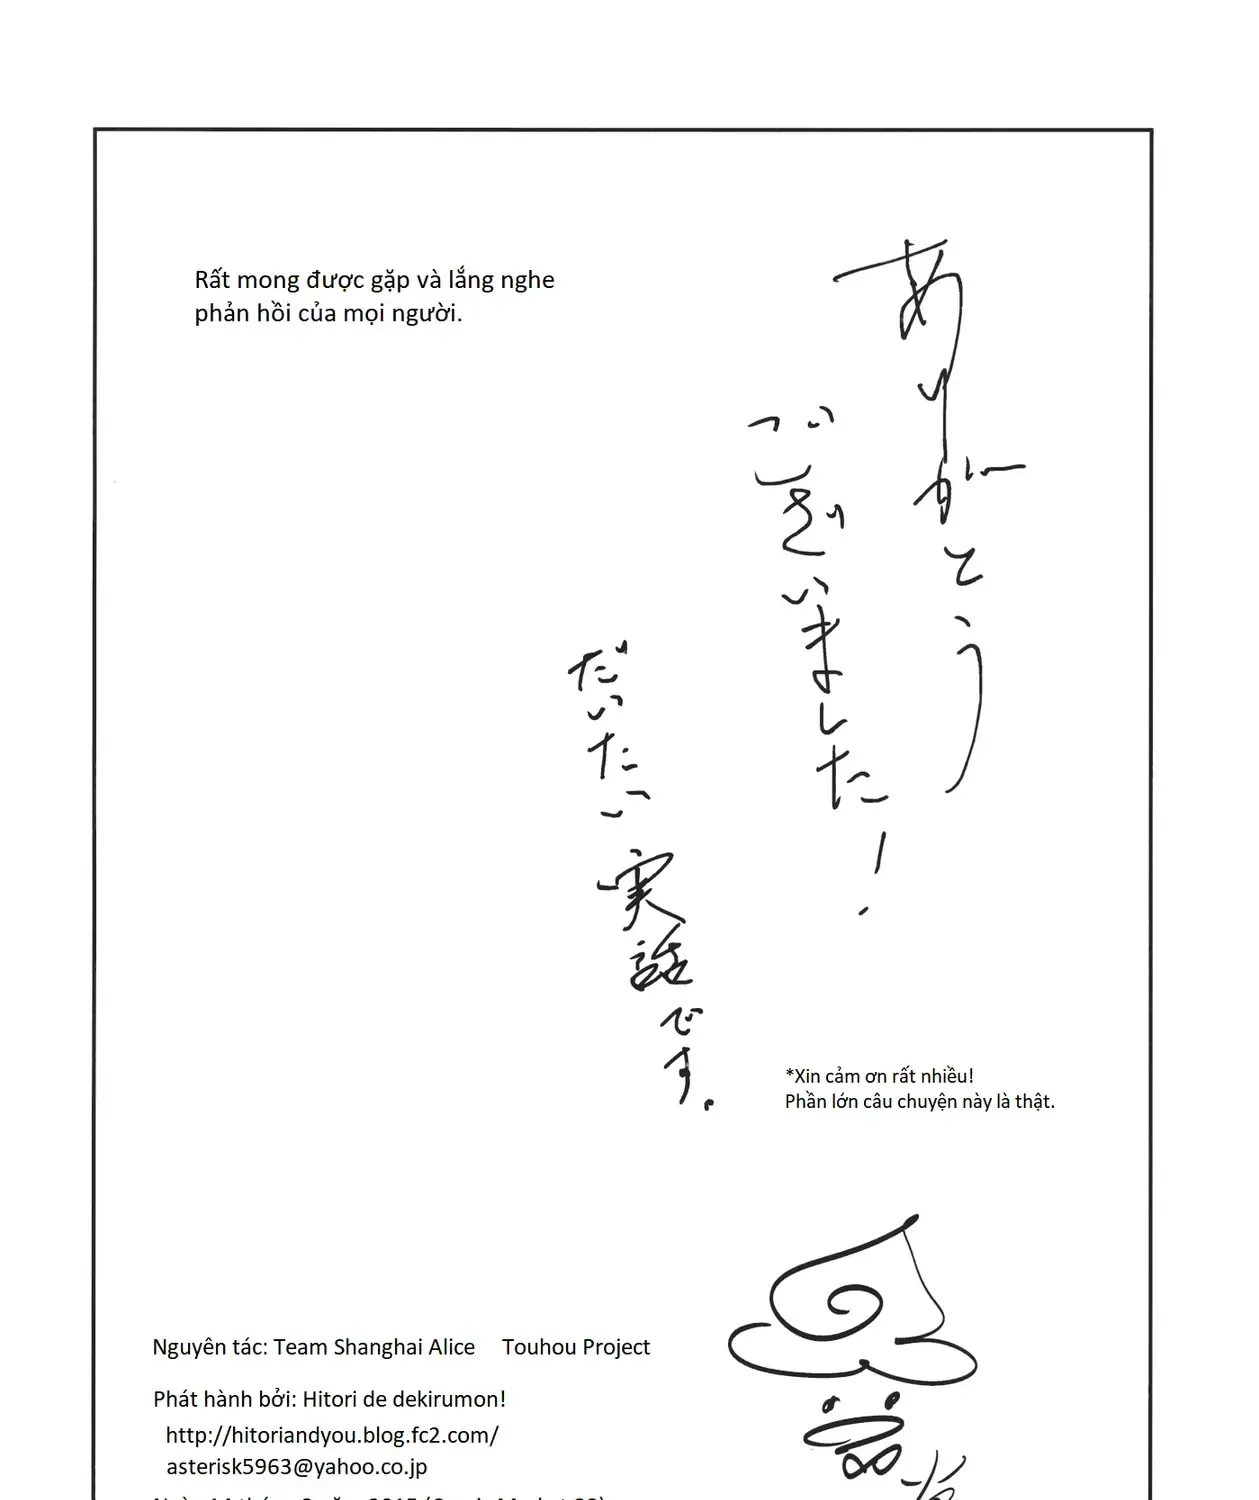 Rất mong được gặp và lắng nghe
phản hồi của mọi người.
ありがとう
ございました!
だいたい実話です。
*Xin cảm ơn rất nhiều!
Phần lớn câu chuyện này là thật.
Nguyên tác: Team Shanghai Alice Touhou Project
Phát hành bởi: Hitori de dekirumon!
http://hitoriandyou.blog.fc2.com/
asterisk5963@yahoo.co.jp